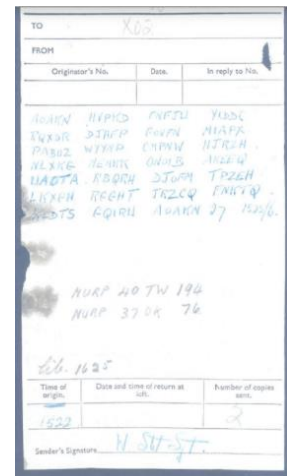 TO X02
FROM
Originator's No. Date. In reply to No.
AOAKN HVPKD FNFJW YIDDC
RQXSR DJHFP GOVFN MIAPX
PABUZ WYYNP CMPNW HJRZH
NLXKG MEMKK ONOIB AKEEQ
UAOTA RBQRH DJOFM TPZEH
LKXGH RGGHT JRZCQ FNKTQ
KLDTS GQIRU AOAKN 27 1525/6.
NURP 40 TW 194
NURP 37 OK 76
lib. 1625
Time of origin. Date and time of return at loft. Number of copies sent.
1522 2
Sender's Signature W Stot Sjt.